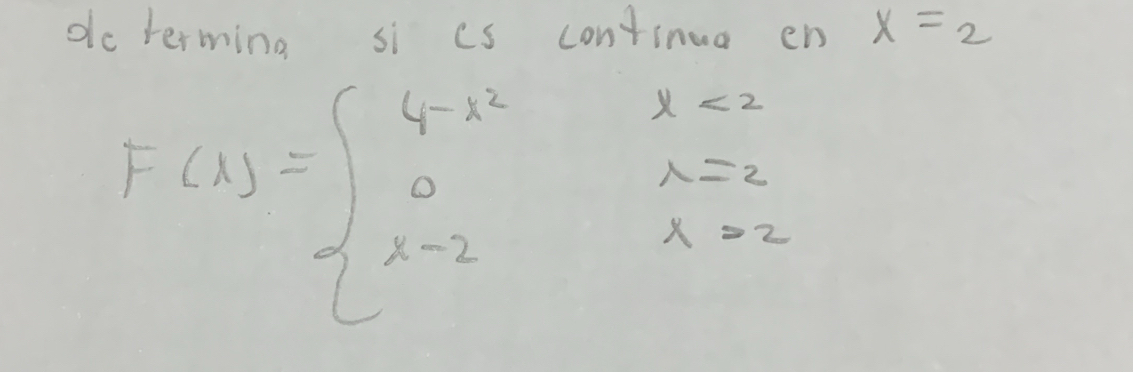 determina si es continua en x = 2
4-x² x < 2
F(x) = { 0 x = 2
x-2 x > 2